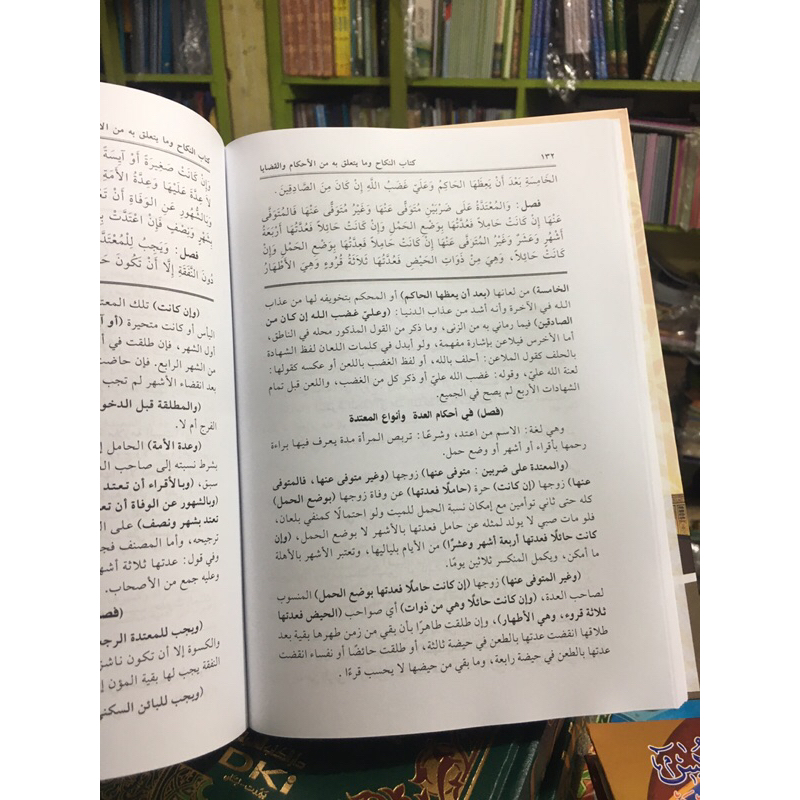 ١٣٢
كتاب النكاح وما يتعلق به من الأحكام والقضايا
الْخَامِسَةِ بَعْدَ أَنْ يَعِظَهَا الْحَاكِمُ وَعَلَيَّ غَضَبُ اللَّهِ إِنْ كَانَ مِنَ الصَّادِقِينَ.
فصل: وَالْمُعْتَدَّةُ عَلَى ضَرْبَيْنِ مُتَوَفًّى عَنْهَا وَغَيْرُ مُتَوَفًّى عَنْهَا فَالْمُتَوَفَّى
عَنْهَا إِنْ كَانَتْ حَامِلاً فَعِدَّتُهَا بِوَضْعِ الْحَمْلِ وَإِنْ كَانَتْ حَائِلاً فَعِدَّتُهَا أَرْبَعَةُ
أَشْهُرٍ وَعَشْرٌ وَغَيْرُ الْمُتَوَفَّى عَنْهَا إِنْ كَانَتْ حَامِلاً فَعِدَّتُهَا بِوَضْعِ الْحَمْلِ وَإِنْ
كَانَتْ حَائِلاً، وَهِيَ مِنْ ذَوَاتِ الْحَيْضِ فَعِدَّتُهَا ثَلَاثَةُ قُرُوءٍ وَهِيَ الْأَطْهَارُ
الخامسة) من لعانها (بعد أن يعظها الحاكم) أو المحكم بتخويفه لها من عذاب
الله في الآخرة وأنه أشد من عذاب الدنيا: (وعليّ غضب الله إن كان من
الصادقين) فيما رماني به من الزنى، وما ذكر من القول المذكور محله في الناطق،
أما الأخرس فيلاعن بإشارة مفهمة، ولو أبدل في كلمات اللعان لفظ الشهادة
بالحلف كقول الملاعن: أحلف بالله، أو لفظ الغضب باللعن أو عكسه كقولها:
لعنة الله علي، وقوله: غضب الله عليّ أو ذكر كل من الغضب، واللعن قبل تمام
الشهادات الأربع لم يصح في الجميع.
(فصل) في أحكام العدة وأنواع المعتدة
وهي لغة: الاسم من اعتد، وشرعًا: تربص المرأة مدة يعرف فيها براءة
رحمها بأقراء أو أشهر أو وضع حمل.
(والمعتدة على ضربين: متوفى عنها) زوجها (وغير متوفى عنها، فالمتوفى
عنها) زوجها (إن كانت) حرة (حاملًا فعدتها) عن وفاة زوجها (بوضع الحمل)
كله حتى ثاني توأمين مع إمكان نسبة الحمل للميت ولو احتمالًا كمنفي بلعان،
فلو مات صبي لا يولد لمثله عن حامل فعدتها بالأشهر لا بوضع الحمل، (وإن
كانت حائلًا فعدتها أربعة أشهر وعشرًا) من الأيام بلياليها، وتعتبر الأشهر بالأهلة
ما أمكن، ويكمل المنكسر ثلاثين يومًا.
(وغير المتوفى عنها) زوجها (إن كانت حاملًا فعدتها بوضع الحمل) المنسوب
لصاحب العدة، (وإن كانت حائلًا وهي من ذوات) أي صواحب (الحيض فعدتها
ثلاثة قروء، وهي الأطهار)، وإن طلقت طاهرًا بأن بقي من زمن طهرها بقية بعد
طلاقها انقضت عدتها بالطعن في حيضة ثالثة، أو طلقت حائضًا أو نفساء انقضت
عدتها بالطعن في حيضة رابعة، وما بقي من حيضها لا يحسب قرءًا.
كتاب النكاح وما يتعلق به من
وَإِنْ كَانَتْ صَغِيرَةً أَوْ آيِسَةً
لَا عِدَّةَ عَلَيْهَا وَعِدَّةُ الْأَمَةِ
وَبِالشُّهُورِ عَنِ الْوَفَاةِ أَنْ
بِشَهْرٍ وَنِصْفٍ فَإِنْ اعْتَدَّتْ
فصل: وَيَجِبُ لِلْمُعْتَدَّةِ
دُونَ النَّفَقَةِ إِلَّا أَنْ تَكُونَ
(وإن كانت) تلك المعتدة
اليأس أو كانت متحيرة (أو
أول الشهر، فإن طلقت في
من الشهر الرابع. فإن حاضت
بعد انقضاء الأشهر لم تجب
(والمطلقة قبل الدخول
الفرج أم لا.
(وعدة الأمة) الحامل
بشرط نسبته إلى صاحب
سبق، (وبالأقراء أن تعتد
(وبالشهور عن الوفاة أن
تعتد بشهر ونصف) على
ترجيحه، وأما المصنف
وفي قول: عدتها ثلاثة
وعليه جمع من الأصحاب.
(فصل
(ويجب للمعتدة
والكسوة إلا أن تكون
النفقة يجب لها بقية المؤن
(ويجب للبائن السكنى
DKi